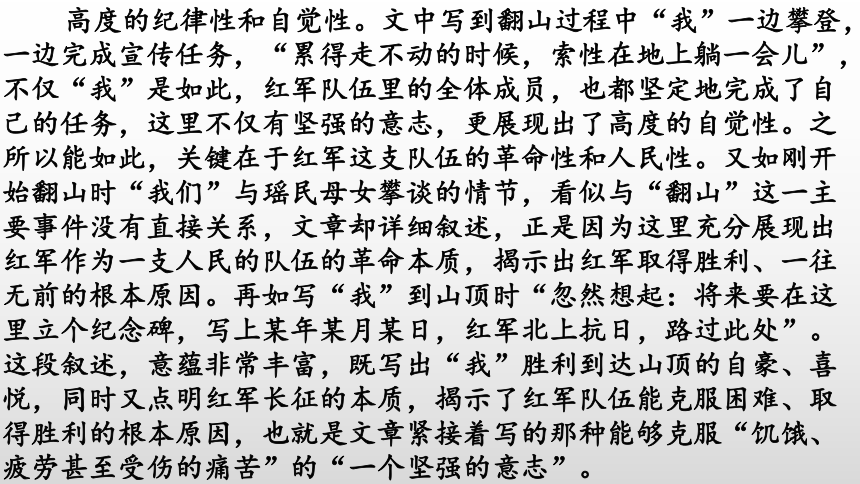 高度的纪律性和自觉性。文中写到翻山过程中“我”一边攀登，
一边完成宣传任务，“累得走不动的时候，索性在地上躺一会儿”，
不仅“我”是如此，红军队伍里的全体成员，也都坚定地完成了自
己的任务，这里不仅有坚强的意志，更展现出了高度的自觉性。之
所以能如此，关键在于红军这支队伍的革命性和人民性。又如刚开
始翻山时“我们”与瑶民母女攀谈的情节，看似与“翻山”这一主
要事件没有直接关系，文章却详细叙述，正是因为这里充分展现出
红军作为一支人民的队伍的革命本质，揭示出红军取得胜利、一往
无前的根本原因。再如写“我”到山顶时“忽然想起：将来要在这
里立个纪念碑，写上某年某月某日，红军北上抗日，路过此处”。
这段叙述，意蕴非常丰富，既写出“我”胜利到达山顶的自豪、喜
悦，同时又点明红军长征的本质，揭示了红军队伍能克服困难、取
得胜利的根本原因，也就是文章紧接着写的那种能够克服“饥饿、
疲劳甚至受伤的痛苦”的“一个坚强的意志”。